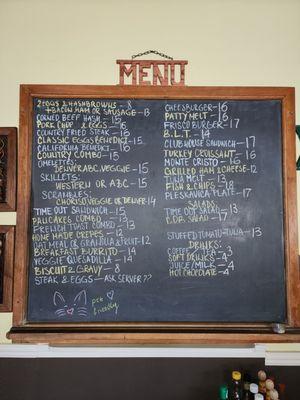 MENU
2 EGGS & HASHBROWNS - 8
+ BACON HAM OR SAUSAGE - 13
CORNED BEEF HASH - 15
PORK CHOP & EGGS - 16
COUNTRY FRIED STEAK - 16
CLASSIC EGGS BENEDICT - 15
CALIFORNIA BENEDICT - 16
COUNTRY COMBO - 15
OMELETTES:
DENVER ABC VEGGIE - 15
SKILLETS:
WESTERN OR ABC - 15
SCRAMBLES:
CHORISO VEGGIE OR DENVER 14
TIME OUT SANDWICH - 15
PANCAKES COMBO - 13
FRENCH TOAST COMBO - 13
HOME MADE CREPES - 12
OATMEAL OR GRANOLA & FRUIT - 12
BREAKFAST BURRITO - 14
VEGGIE QUESADILLA - 14
BISCUIT & GRAVY - 8
STEAK & EGGS - ASK SERVER ??
pet friendly
CHEESBURGER - 16
PATTY MELT - 16
FRISCO BURGER - 17
B.L.T. - 14
CLUB HOUSE SANDWICH - 17
TURKEY CROISSANT - 16
MONTE CRISTO - 16
GRILLED HAM & CHEESE - 12
TUNA MELT - 15
FISH & CHIPS - 18
PLESKAVICA PLATE - 17
SALADS:
TIME OUT SALAD - 13
COBB SALAD - 17
STUFFED TOMATO-TUNA - 13
DRINKS:
COFFEE - 3
SOFT DRINKS - 4
JUICE/MILK - 4
HOT CHOCOLATE - 4